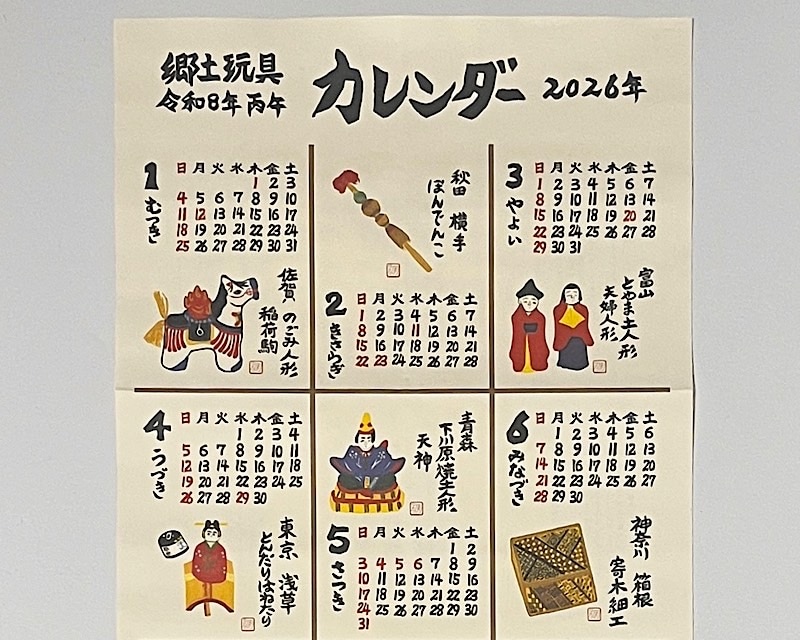 郷土玩具
令和8年 丙午
カレンダー 2026年
1 むつき
日 月 火 水 木 金 土
1 2 3
4 5 6 7 8 9 10
11 12 13 14 15 16 17
18 19 20 21 22 23 24
25 26 27 28 29 30 31
佐賀 のごみ人形
稲荷駒
秋田 横手
ぼんでんこ
2 きさらぎ
日 月 火 水 木 金 土
1 2 3 4 5 6 7
8 9 10 11 12 13 14
15 16 17 18 19 20 21
22 23 24 25 26 27 28
3 やよい
日 月 火 水 木 金 土
1 2 3 4 5 6 7
8 9 10 11 12 13 14
15 16 17 18 19 20 21
22 23 24 25 26 27 28
29 30 31
富山
とやま土人形
夫婦人形
4 うづき
日 月 火 水 木 金 土
1 2 3 4
5 6 7 8 9 10 11
12 13 14 15 16 17 18
19 20 21 22 23 24 25
26 27 28 29 30
東京 浅草
とんだりはねたり
青森
下川原焼土人形
天神
5 さつき
日 月 火 水 木 金 土
1 2
3 4 5 6 7 8 9
10 11 12 13 14 15 16
17 18 19 20 21 22 23
24 25 26 27 28 29 30
31
6 みなづき
日 月 火 水 木 金 土
1 2 3 4 5 6
7 8 9 10 11 12 13
14 15 16 17 18 19 20
21 22 23 24 25 26 27
28 29 30
神奈川 箱根
寄木細工